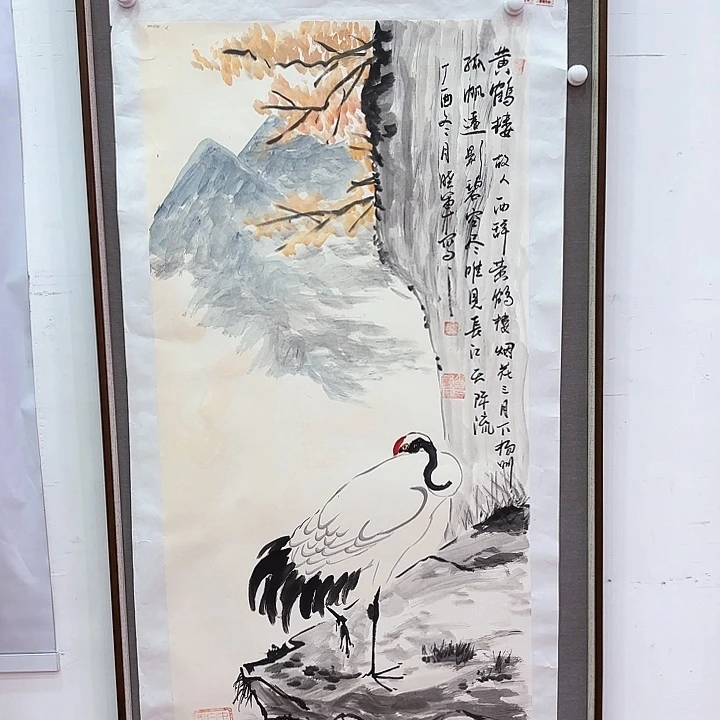 黄鹤楼 故人西辞黄鹤楼烟花三月下扬州
孤帆远影碧空尽唯见長江天际流
丁酉冬月晓軍寫